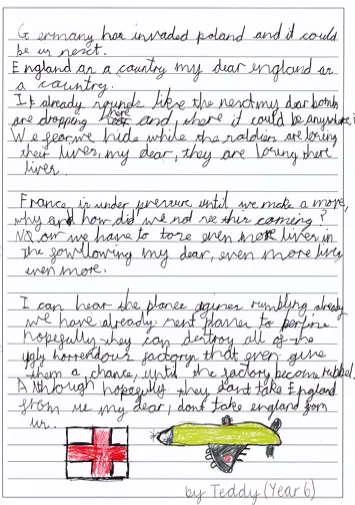 Germany has invaded poland and it could
be us next.
England as a country my dear england as
a country.
It already sounds like the next my dear bombs
are dropping here and, where it could be anywhere
We fear we hide while the soldiers are losing
their lives, my dear, they are losing there
lives.
France, is under pressure until we make a move,
why and how did we not see this coming?
NOw we have to tose even more lives in
the following my dear, even more lives
even more.
I can hear the planes rumbling already
we have already sent planes to
hopefully they can destroy all of the
ugly horrendous factory that even give
them a chance, until the factory become rubbel.
Although hopefully they dont take England
from us my dear, dont take england from
us.
by Teddy (Year 6)